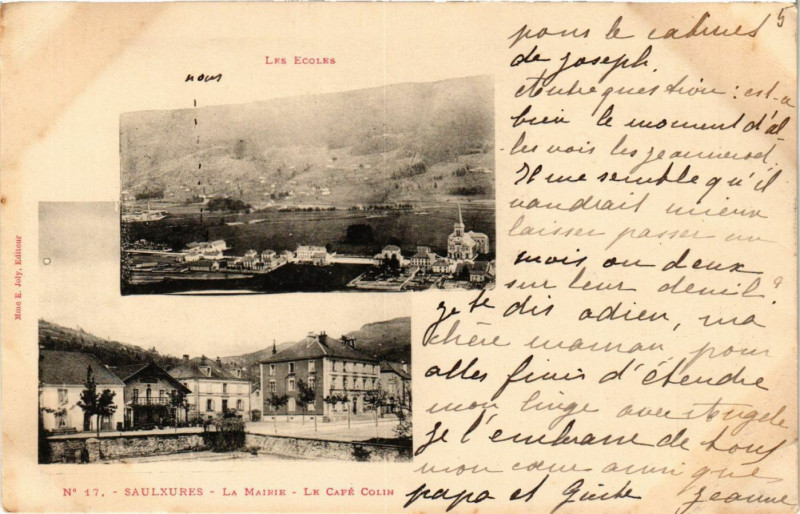 5
LES ECOLES
nous
Mme E. Joly, Editeur
N° 17. - SAULXURES - LA MAIRIE - LE CAFÉ COLIN
pour le cabinet
de Joseph
Autre question : est-ce
bien le moment d'al-
ler voir les Jeannerod.
Il me semble qu'il
vaudrait mieux
laisser passer un
mois ou deux
sur leur deuil ?
Je te dis adieu, ma
chère maman pour
aller finir d'étendre
mon linge avec Angèle
Je t'embrasse de tout
mon cœur ainsi que
papa et Jeanne